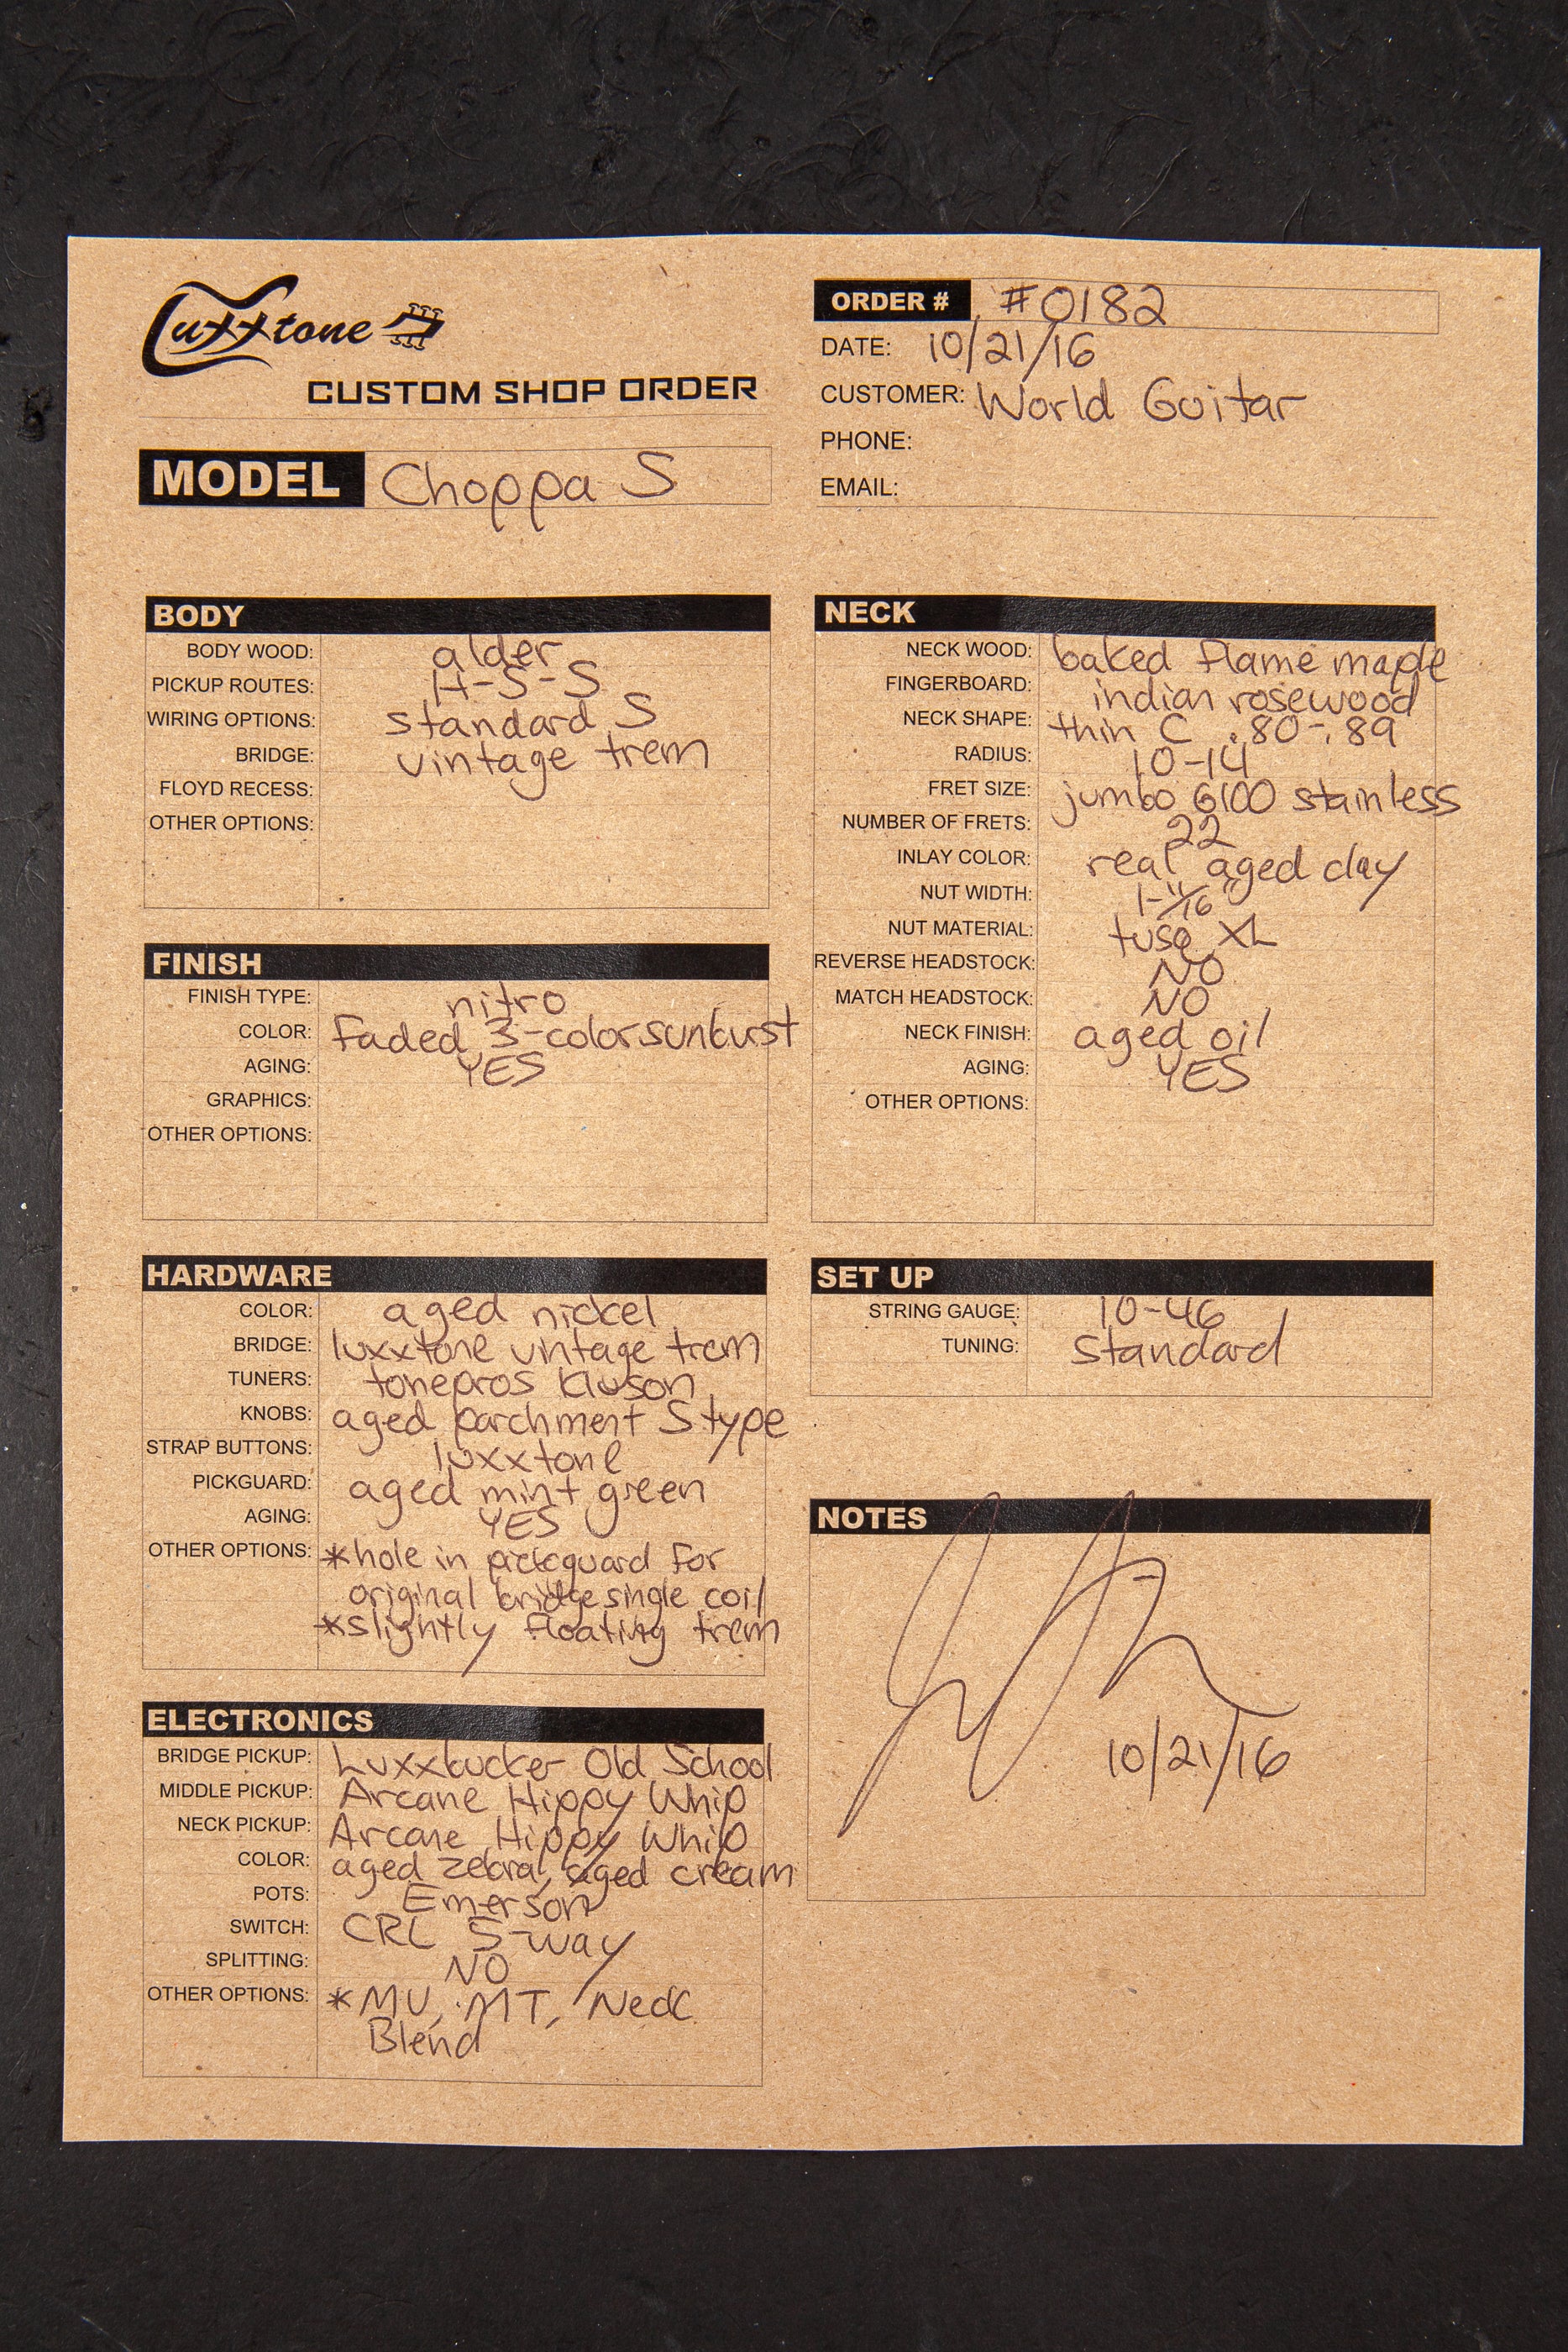 Luxxtone
CUSTOM SHOP ORDER
MODEL Choppa S
ORDER # #0182
DATE: 10/21/16
CUSTOMER: World Guitar
PHONE:
EMAIL:
BODY
BODY WOOD: alder
PICKUP ROUTES: H-S-S
WIRING OPTIONS: standard S
BRIDGE: vintage trem
FLOYD RECESS:
OTHER OPTIONS:
FINISH
FINISH TYPE: nitro
COLOR: Faded 3-color sunburst
AGING: YES
GRAPHICS:
OTHER OPTIONS:
HARDWARE
COLOR: aged nickel
BRIDGE: luxxtone vintage trem
TUNERS: tonepros kluson
KNOBS: aged parchment S type
STRAP BUTTONS: luxxtone
PICKGUARD: aged mint green
AGING: YES
OTHER OPTIONS: *hole in pickguard for
original bridge single coil
*slightly floating trem
ELECTRONICS
BRIDGE PICKUP: Luxxbucker Old School
MIDDLE PICKUP: Arcane Hippy Whip
NECK PICKUP: Arcane Hippy Whip
COLOR: aged zebra, aged cream
POTS: Emerson
SWITCH: CRL 5-way
SPLITTING: NO
OTHER OPTIONS: *MV, MT, Neck
Blend
NECK
NECK WOOD: baked flame maple
FINGERBOARD: indian rosewood
NECK SHAPE: thin C .80-.89
RADIUS: 10-14
FRET SIZE: jumbo 6100 stainless
NUMBER OF FRETS: 22
INLAY COLOR: real aged clay
NUT WIDTH: 1-11/16"
NUT MATERIAL: tusq XL
REVERSE HEADSTOCK: NO
MATCH HEADSTOCK: NO
NECK FINISH: aged oil
AGING: YES
OTHER OPTIONS:
SET UP
STRING GAUGE: 10-46
TUNING: Standard
NOTES
10/21/16